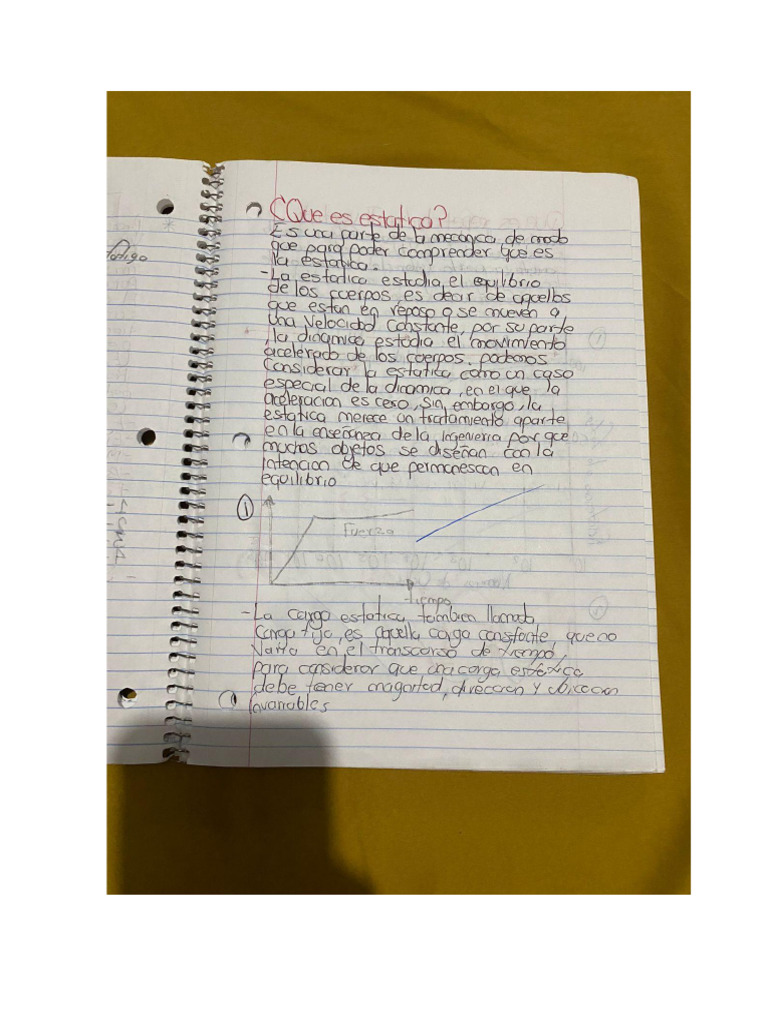 ¿Que es estatica?
Es una parte de la mecánica, de modo
que para poder comprender que es
la estatica.
- La estatica estudia el equilibrio
de los cuerpos es decir de aquellos
que estan en reposo o se mueven a
una velocidad constante, por su parte
la dinamica estudia el movimiento
acelerado de los cuerpos. podemos
Considerar la estatica como un caso
especial de la dinamica, en el que la
aceleracion es cero, sin embargo, la
estatica merece un tratamiento aparte
en la enseñanza de la Ingenieria por que
muchos objetos se diseñan con la
intencion de que permanescan en
equilibrio
1
Fuerza
tiempo
- La carga estatica, tambien llamada
Carga fija, es aquella carga constante que no
varia en el transcurso de tiempo,
para considerar que una carga estatica
debe tener magnitud, direccion y ubicacion
invariables